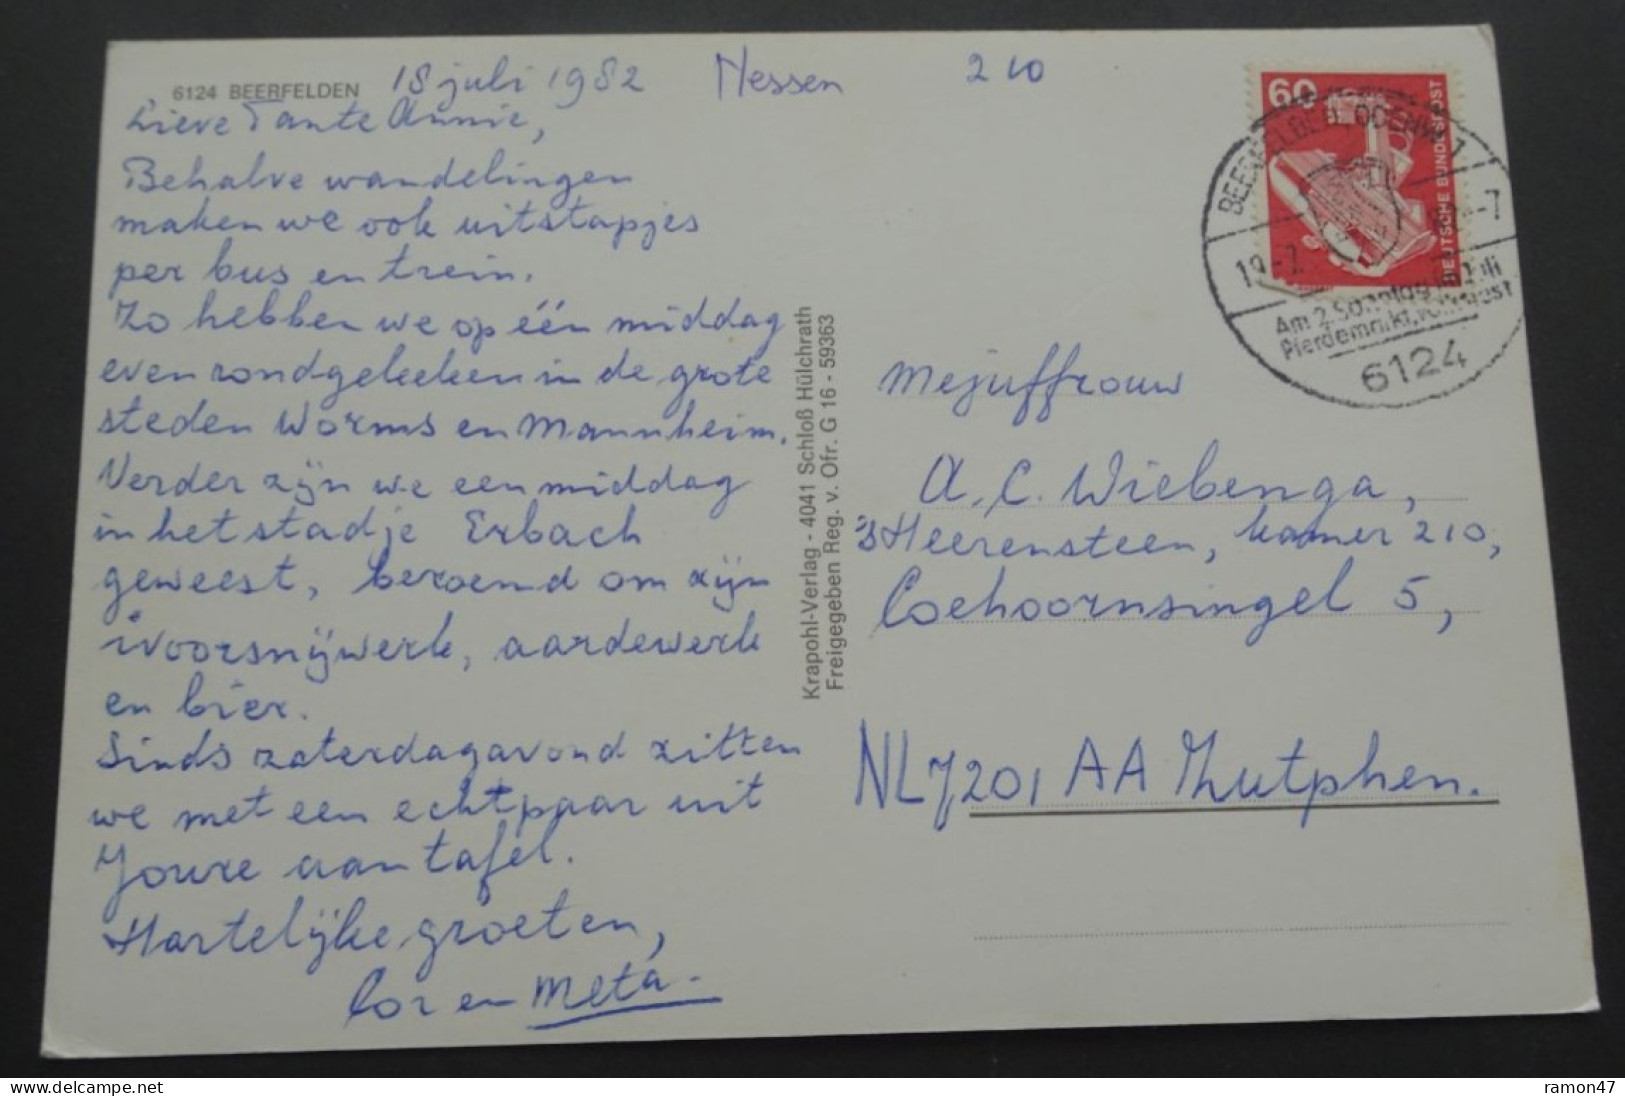 6124 BEERFELDEN 18 juli 1982 Hessen 210
Lieve Tante Annie,
Behalve wandelingen
maken we ook uitstapjes
per bus en trein.
Zo hebben we op één middag
even rondgekeken in de grote
steden Worms en Mannheim.
Verder zijn we een middag
in het stadje Erbach
geweest, beroemd om zijn
ivoorsnijwerk, aardewerk
en bier.
Sinds zaterdagavond zitten
we met een echtpaar uit
Joure aan tafel.
Hartelijke groeten,
Cor en Meta.
Krapohl-Verlag - 4041 Schloß Hülchrath
Freigegeben Reg. v. Ofr. G 16 - 59363
60
DEUTSCHE BUNDESPOST
BEERFELDEN, ODENW 1
19.-7.
-7
Am 2. Sonntag im Juli
Pferdemarkt, Volksfest
6124
Mejuffrouw
A.C. Wiebenga,
's Heerensteen, kamer 210,
Coehoornsingel 5,
NL 7201 AA Zutphen.
www.delcampe.net
ramon47